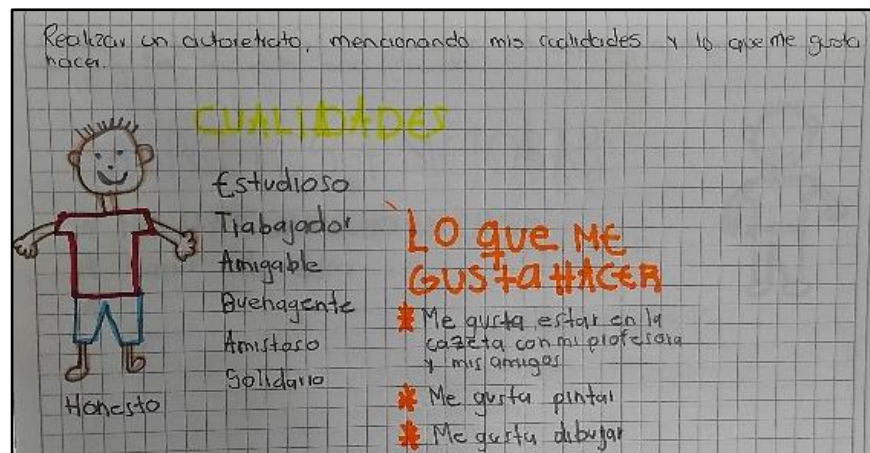 Realizar un autoretrato, mencionando mis cualidades y lo que me gusta
hacer.
CUALIDADES
Estudioso
Trabajador
Amigable
Buenagente
Amistoso
Solidario
Honesto
LO que ME
GUSTA HACER
* Me gusta estar en la
cazeta con mi profesora
y mis amigos
* Me gusta pintar
* Me gusta dibujar